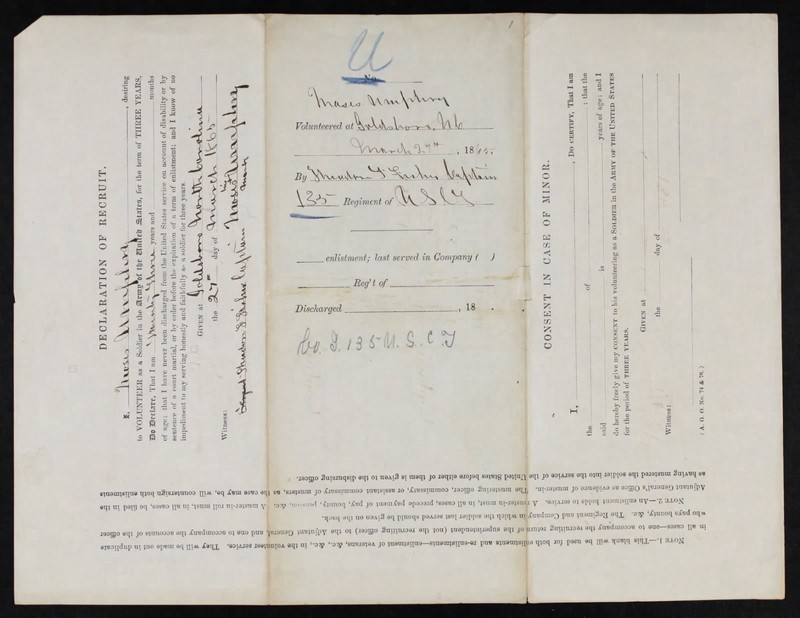 DECLARATION OF RECRUIT.
I, Moses Umphery, desiring
to VOLUNTEER as a Soldier in the Army of the United States, for the term of THREE YEARS,
Do Declare, That I am Twenty three years and months
of age; that I have never been discharged from the United States service on account of disability or by
sentence of a court martial, or by order before the expiration of a term of enlistment; and I know of no
impediment to my serving honestly and faithfully as a soldier for three years.
GIVEN at Goldsboro North Carolina
the 27th day of March 1865
Moses Umphery
mark
Witness:
Captain
1
U
No.
Moses Umphery
Volunteered at Goldsboro, N C
March 27th, 1865,
By Captain
135 Regiment of U S C T
enlistment; last served in Company ( )
Reg't of
Discharged , 18 .
Co. I. 135 U. S. C. T
CONSENT IN CASE OF MINOR.
I, , Do CERTIFY, That I am
the of ; that the
said is years of age; and I
do hereby freely give my CONSENT to his volunteering as a SOLDIER in the ARMY OF THE UNITED STATES
for the period of THREE YEARS.
GIVEN at
the day of
Witness:
( A. G. O. No. 74 & 76. )
NOTE 1.—This blank will be used for both enlistments and re-enlistments—enlistment of veterans, &c., &c., in the volunteer service. They will be made out in duplicate
in all cases—one to accompany the recruiting return of the superintendent (not the recruiting officer) to the Adjutant General, and one to accompany the accounts of the officer
who pays bounty, &c. The Regiment and Company in which the soldier last served should be given on the back.
NOTE 2.—An enlistment holds to service. A muster-in must, in all cases, precede payment of pay, bounty, premium, &c. A muster-in roll must, in all cases, be filed in the
Adjutant General's Office as evidence of muster-in. The mustering officer, commissary, or assistant commissary of musters, as the case may be, will countersign both enlistments
as having mustered the soldier into the service of the United States before either of them is given to the disbursing officer.